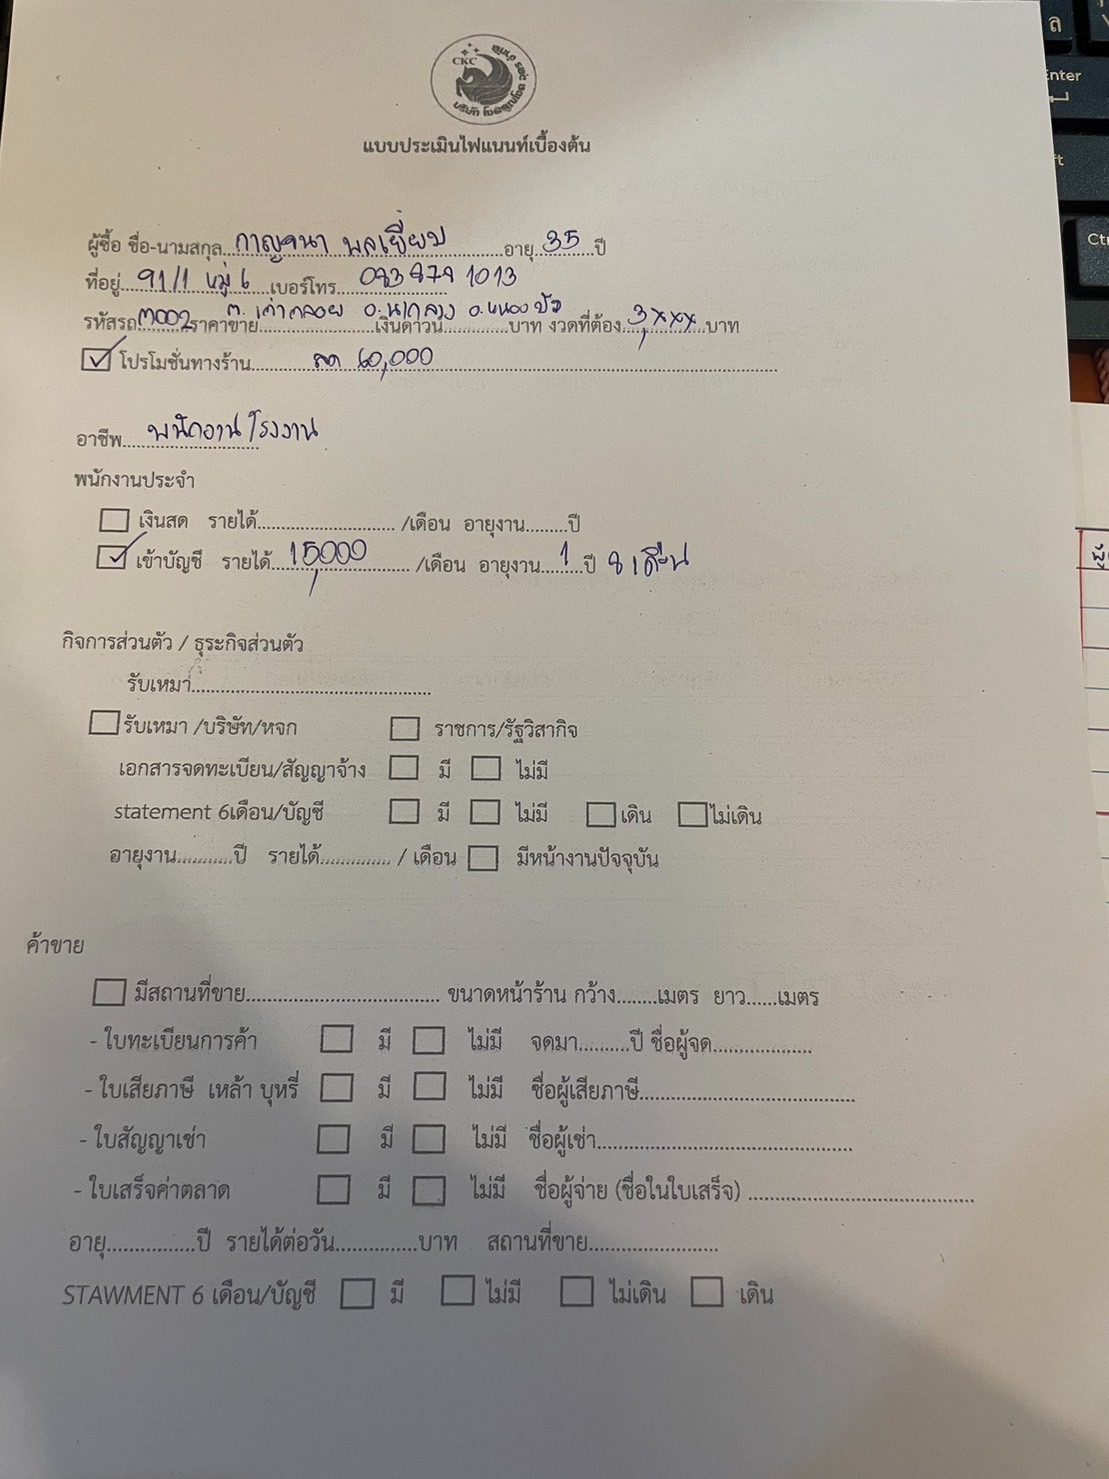 CKC
แบบประเมินไฟแนนท์เบื้องต้น
ผู้ซื้อ ชื่อ-นามสกุล กาญจนา พลเยี่ยม อายุ 35 ปี
ที่อยู่ 91/1 หมู่ 6 เบอร์โทร 083 879 1013
ต. เก่ากลอย อ. นากลาง จ. หนองบัว
รหัสรถ M002 ราคาขาย เงินดาวน์ บาท งวดที่ต้อง 3,xxx บาท
โปรโมชั่นทางร้าน ลด 60,000
อาชีพ พนักงานโรงงาน
พนักงานประจำ
เงินสด รายได้ /เดือน อายุงาน ปี
เข้าบัญชี รายได้ 15,000 /เดือน อายุงาน 1 ปี 8 เดือน
กิจการส่วนตัว / ธุระกิจส่วนตัว
รับเหมา
รับเหมา /บริษัท/หจก ราชการ/รัฐวิสากิจ
เอกสารจดทะเบียน/สัญญาจ้าง มี ไม่มี
statement 6เดือน/บัญชี มี ไม่มี เดิน ไม่เดิน
อายุงาน ปี รายได้ / เดือน มีหน้างานปัจจุบัน
ค้าขาย
มีสถานที่ขาย ขนาดหน้าร้าน กว้าง เมตร ยาว เมตร
- ใบทะเบียนการค้า มี ไม่มี จดมา ปี ชื่อผู้จด
- ใบเสียภาษี เหล้า บุหรี่ มี ไม่มี ชื่อผู้เสียภาษี
- ใบสัญญาเช่า มี ไม่มี ชื่อผู้เช่า
- ใบเสร็จค่าตลาด มี ไม่มี ชื่อผู้จ่าย (ชื่อในใบเสร็จ)
อายุ ปี รายได้ต่อวัน บาท สถานที่ขาย
STAWMENT 6 เดือน/บัญชี มี ไม่มี ไม่เดิน เดิน
Enter